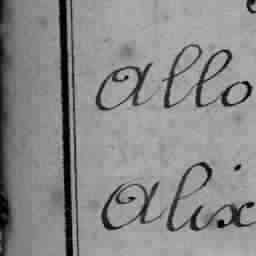 Allo
Alix